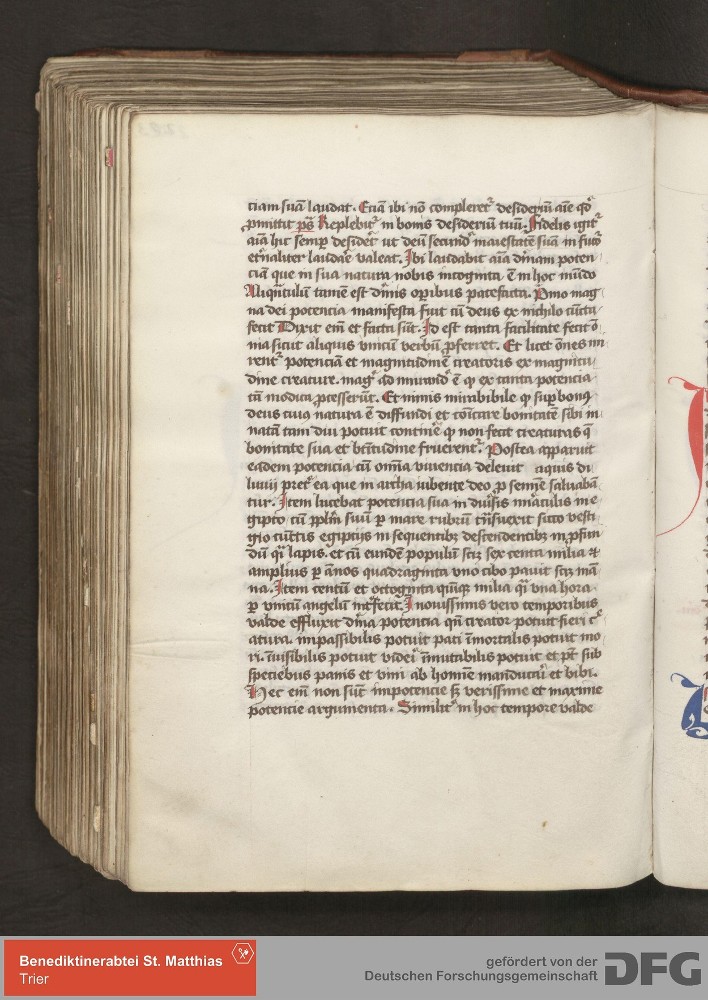 ciam suā laudat. Eciā ibi nō compleret᷑ desideriū aīe qđ
ꝓmittit ꝓs Replebit᷑ in bonis desideriū tuū. Fidelis igit᷑
aīa hic semꝑ desideret ut deū secundū maiestatē suā in futō
et̾naliter laudare valeat. Ibi laudabit aīa dīnam poten
ciā que in sua natura nobis incognita ē in hoc mūdo
Aliqn̄tulum tamē est dīnis oꝑibus patefacta. Pͥmo mag
na dei potencia manifesta fuit cū deus ex nichilo cūcta
fecit Dixit em̄ et facta sūt. Id est tanta facilitate fecit ō
nia sicut aliquis vnicū verbū ꝓferret. Et licet ōnes mi
rent᷑ potenciā et magnitudinē creatoris ex magnitu
dine creature. mag᷑ admirandū ē ꝙ ex tanta potencia
tā modica ꝓcesserūt. Et nimis mirabibile ꝙ suꝑbonꝰ
deus cuiꝰ natura ē diffundi et cōicare bonitatē sibi in
natā tam diu potuit contin̄e ꝙ non fecit creaturas q̄
bonitate sua et btītudine fruerent᷑. Postea apparuit
eadem potencia cū omīa viuencia deleuit aquis di
luuij pret᷑ ea que in archa iubente deo ꝑ semē saluabā
tur. Item lucebat potencia sua in diuͤsis mͥaculis in e
gipto cū pplm̄ suū ꝑ mare rubrū trāsuexit sicco vesti
gio cūctis egiptijs in sequentibꝫ descendentibꝫ in ꝓfun
dū qͣ lapis. et cū eundē populū scꝫ sex centa milia ⁊
amplius ꝑ ānos quadraginta vno cibo pauit scꝫ mā
na. Item centū et octoginta qūiqꝫ milia qͣ vna hora
ꝑ vnicū angelū int̾fecit. In nouissimis vero temporibus
valde effluxit dīna potencia qn̄ creator potuit fieri cͤ
atura. inpassibilis potuit pati īmortalis potuit mo
ri. īuisibilis potuit videri īmutabilis potuit et pt̄ sub
speciebus panis et vini ab homīe manducari et bibi.
Hec em̄ non sūt impotencie sꝫ verissime et maxime
potencie argumenta. Similit᷑ in hoc tempore valde
Benediktinerabtei St. Matthias
Trier
gefördert von der
Deutschen Forschungsgemeinschaft
DFG